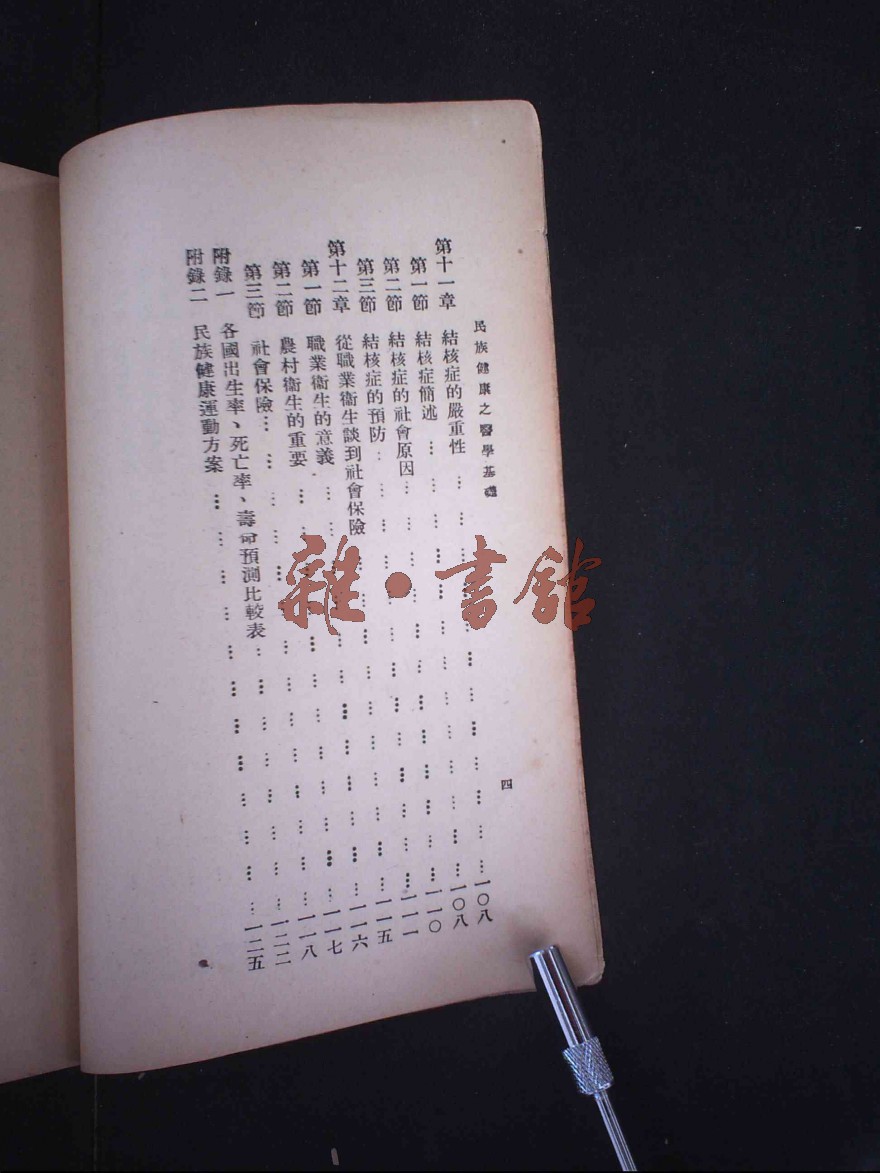 民族健康之醫學基礎 四
第十一章 結核症的嚴重性 … 一〇八
第一節 結核症簡述 … 一〇八
第二節 結核症的社會原因 … 一一〇
第三節 結核症的預防 … 一一一
第十二章 從職業衞生談到社會保險 … 一一五
第一節 職業衞生的意義 … 一一六
第二節 農村衞生的重要 … 一一七
第三節 社會保險 … 一一八
附錄一 各國出生率、死亡率、壽命預測比較表 … 一二二
附錄二 民族健康運動方案 … 一二五
雜·書館